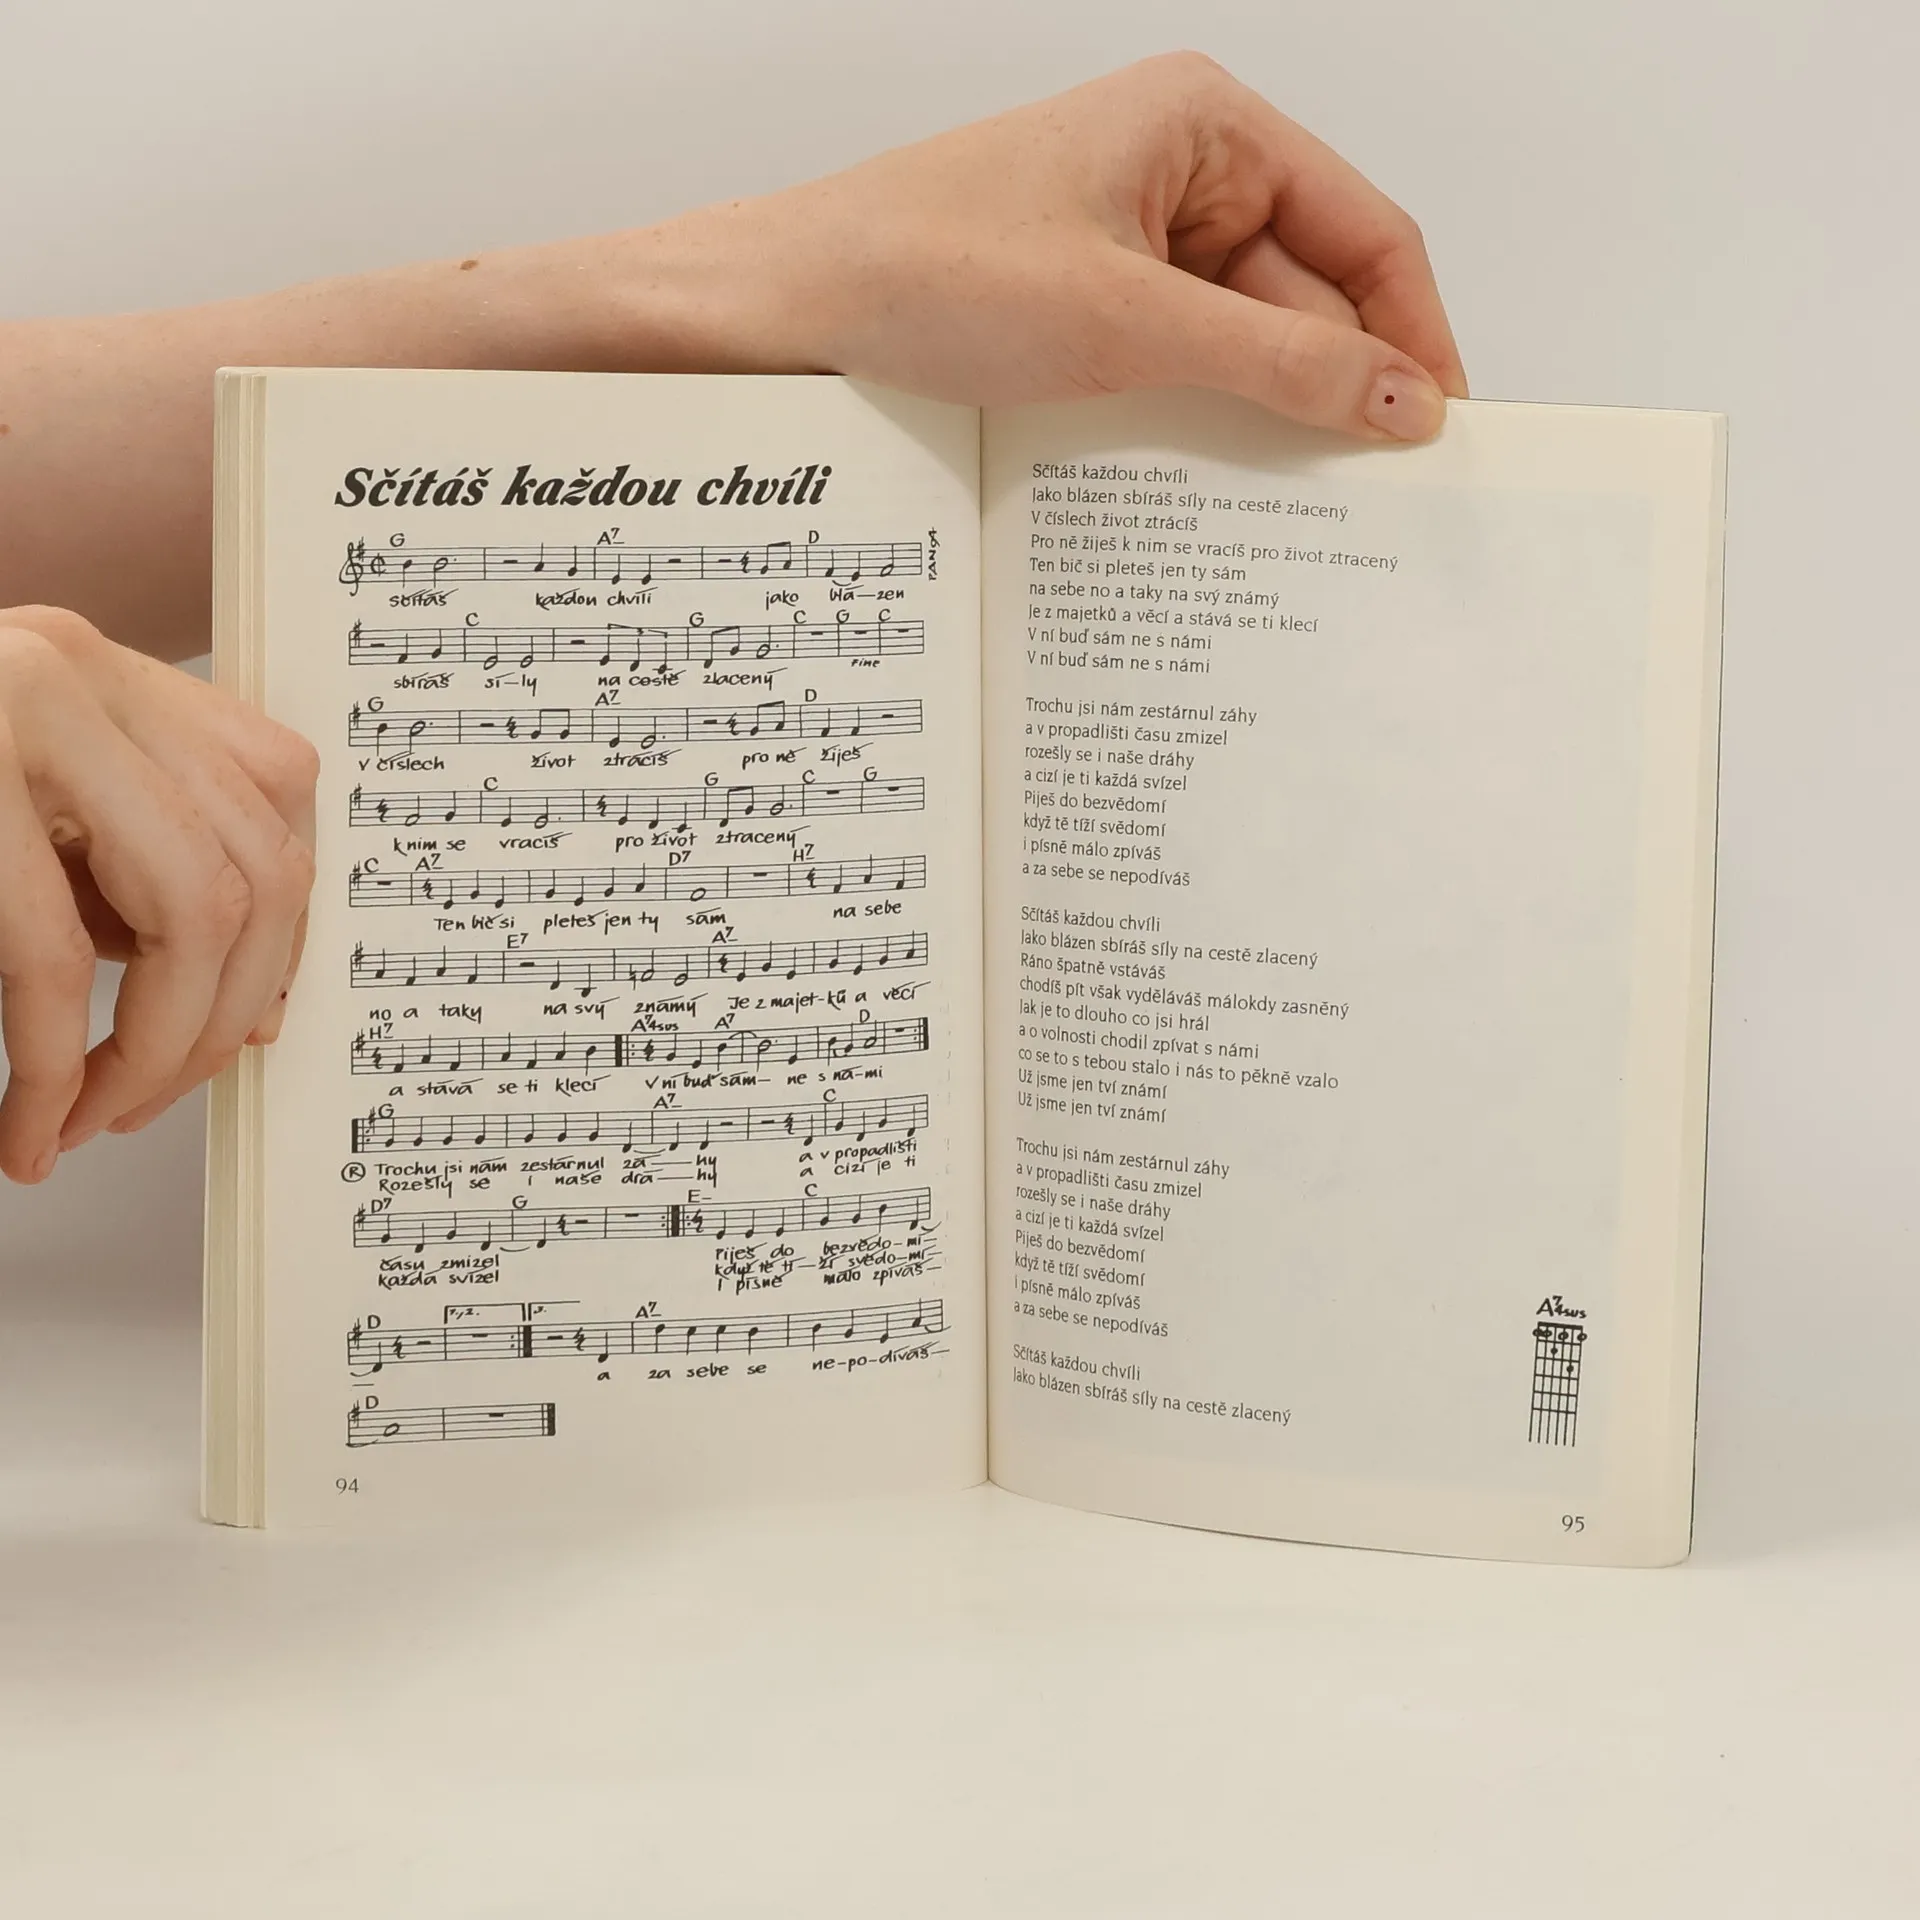 Sčítáš každou chvíli
G A7 D
PAN94
sčítáš každou chvíli jako blá—zen
C G C G C
Fine
sbíráš sí—ly na cestě zlacený
G A7 D
v číslech život ztrácíš pro ně žiješ
C G C G
k nim se vracíš pro život ztracený
C A7 D7 H7
Ten bič si pleteš jen ty sám na sebe
E7 A7
no a taky na svý známý Je z majet-ků a věcí
H7 A74sus A7 D
a stává se ti klecí V ní buď sám— ne s ná-mi
G A7 C
R Trochu jsi nám zestárnul zá——hy a v propadlišti
Rozešly se i naše drá——hy a cizí je ti
D7 G E- C
času zmizel Piješ do bezvědo-mí—
každá svízel když tě tí—ží svědo-mí—
i písně málo zpíváš—
D 1.,2. 3. A7
a za sebe se ne-po-díváš—
D
94
Sčítáš každou chvíli
Jako blázen sbíráš síly na cestě zlacený
V číslech život ztrácíš
Pro ně žiješ k nim se vracíš pro život ztracený
Ten bič si pleteš jen ty sám
na sebe no a taky na svý známý
Je z majetků a věcí a stává se ti klecí
V ní buď sám ne s námi
V ní buď sám ne s námi
Trochu jsi nám zestárnul záhy
a v propadlišti času zmizel
rozešly se i naše dráhy
a cizí je ti každá svízel
Piješ do bezvědomí
když tě tíží svědomí
i písně málo zpíváš
a za sebe se nepodíváš
Sčítáš každou chvíli
Jako blázen sbíráš síly na cestě zlacený
Ráno špatně vstáváš
chodíš pít však vyděláváš málokdy zasněný
Jak je to dlouho co jsi hrál
a o volnosti chodil zpívat s námi
co se to s tebou stalo i nás to pěkně vzalo
Už jsme jen tví známí
Už jsme jen tví známí
Trochu jsi nám zestárnul záhy
a v propadlišti času zmizel
rozešly se i naše dráhy
a cizí je ti každá svízel
Piješ do bezvědomí
když tě tíží svědomí
i písně málo zpíváš
a za sebe se nepodíváš
Sčítáš každou chvíli
Jako blázen sbíráš síly na cestě zlacený
A74sus
95